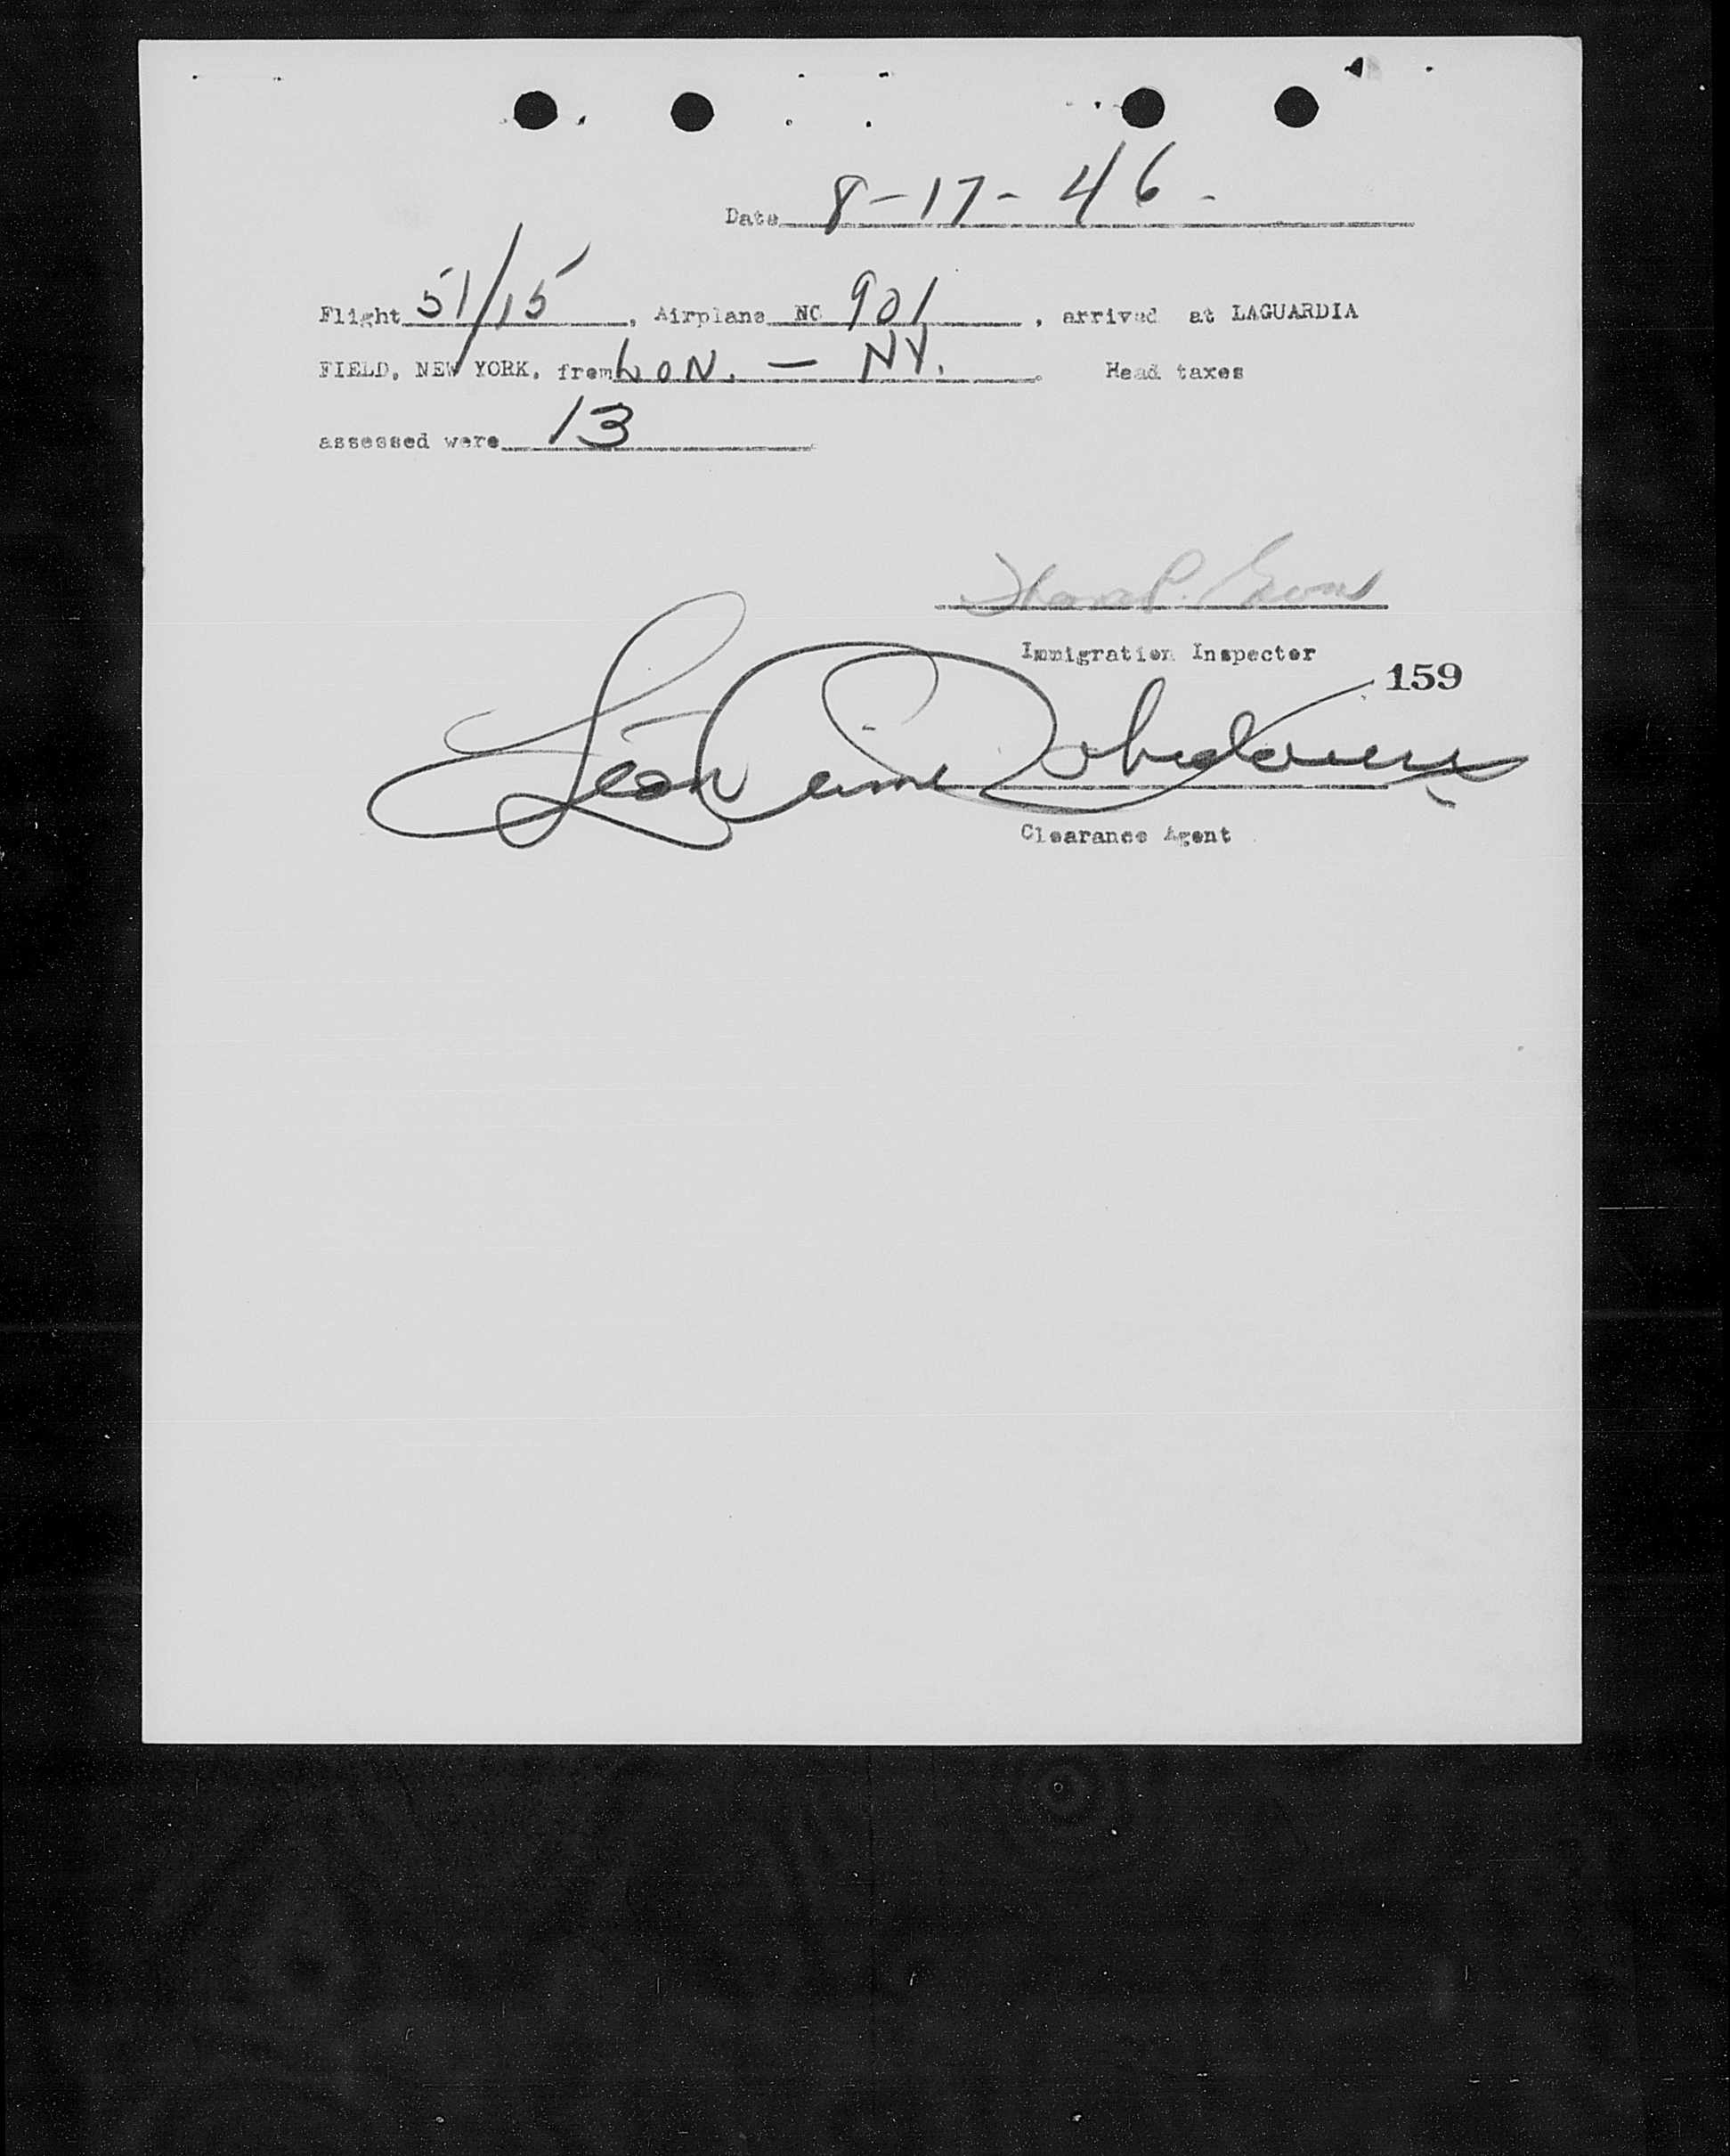 Date 8-17-46-
Flight 51/15, Airplane NC 901, arrived at LAGUARDIA
FIELD, NEW YORK, from LON. - NY. Head taxes
assessed were 13
Immigration Inspector
159
Clearance Agent